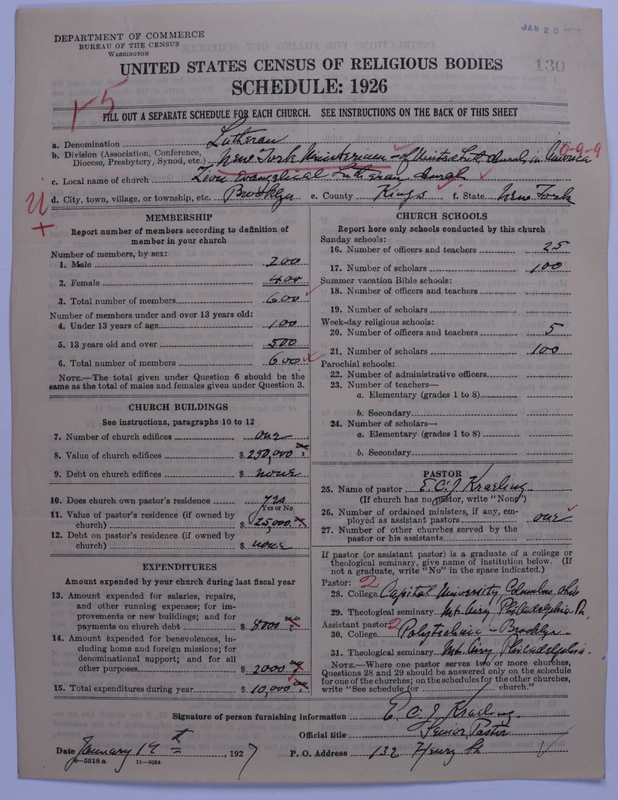 JAN 20
DEPARTMENT OF COMMERCE
BUREAU OF THE CENSUS
WASHINGTON
130
UNITED STATES CENSUS OF RELIGIOUS BODIES
SCHEDULE: 1926
1-5
FILL OUT A SEPARATE SCHEDULE FOR EACH CHURCH. SEE INSTRUCTIONS ON THE BACK OF THIS SHEET
a. Denomination Lutheran
b. Division (Association, Conference, Diocese, Presbytery, Synod, etc.) New York Ministerium of United Luth. Church in America 0-9-9
c. Local name of church Zion Evangelical Lutheran Church
d. City, town, village, or township, etc. Brooklyn e. County Kings f. State New York
MEMBERSHIP
Report number of members according to definition of
member in your church
Number of members, by sex:
1. Male 200
2. Female 400
3. Total number of members 600
Number of members under and over 13 years old:
4. Under 13 years of age 100
5. 13 years old and over 500
6. Total number of members 600
NOTE.—The total given under Question 6 should be the
same as the total of males and females given under Question 3.
CHURCH BUILDINGS
See instructions, paragraphs 10 to 12
7. Number of church edifices one
8. Value of church edifices $ 250,000
9. Debt on church edifices $ none
10. Does church own pastor's residence yes
Yes or No
11. Value of pastor's residence (if owned by
church) $ 25,000
12. Debt on pastor's residence (if owned by
church) $ none
EXPENDITURES
Amount expended by your church during last fiscal year
13. Amount expended for salaries, repairs,
and other running expenses; for im-
provements or new buildings; and for
payments on church debt $ 8000
14. Amount expended for benevolences, in-
cluding home and foreign missions; for
denominational support; and for all
other purposes $ 2000
15. Total expenditures during year $ 10,000
CHURCH SCHOOLS
Report here only schools conducted by this church
Sunday schools:
16. Number of officers and teachers 25
17. Number of scholars 100
Summer vacation Bible schools:
18. Number of officers and teachers
19. Number of scholars
Week-day religious schools:
20. Number of officers and teachers 5
21. Number of scholars 100
Parochial schools:
22. Number of administrative officers
23. Number of teachers—
a. Elementary (grades 1 to 8)
b. Secondary
24. Number of scholars—
a. Elementary (grades 1 to 8)
b. Secondary
PASTOR
25. Name of pastor E. C. J. Kraeling
(If church has no pastor, write "None")
26. Number of ordained ministers, if any, em-
ployed as assistant pastors one
27. Number of other churches served by the
pastor or his assistants
If pastor (or assistant pastor) is a graduate of a college or
theological seminary, give name of institution below. (If
not a graduate, write "No" in the space indicated.)
Pastor: 2
28. College Capital University Columbus, Ohio
29. Theological seminary Mt. Airy Philadelphia Pa
Assistant pastor: 2
30. College Polytechnic - Brooklyn
31. Theological seminary Mt. Airy Philadelphia.
NOTE.—Where one pastor serves two or more churches,
Questions 28 and 29 should be answered only on the schedule
for one of the churches; on the schedules for the other churches,
write "See schedule for church."
Signature of person furnishing information E. C. J. Kraeling
Official title Senior Pastor
Date January 19th, 1927 P. O. Address 132 Henry St
8-5518 a 11-9054